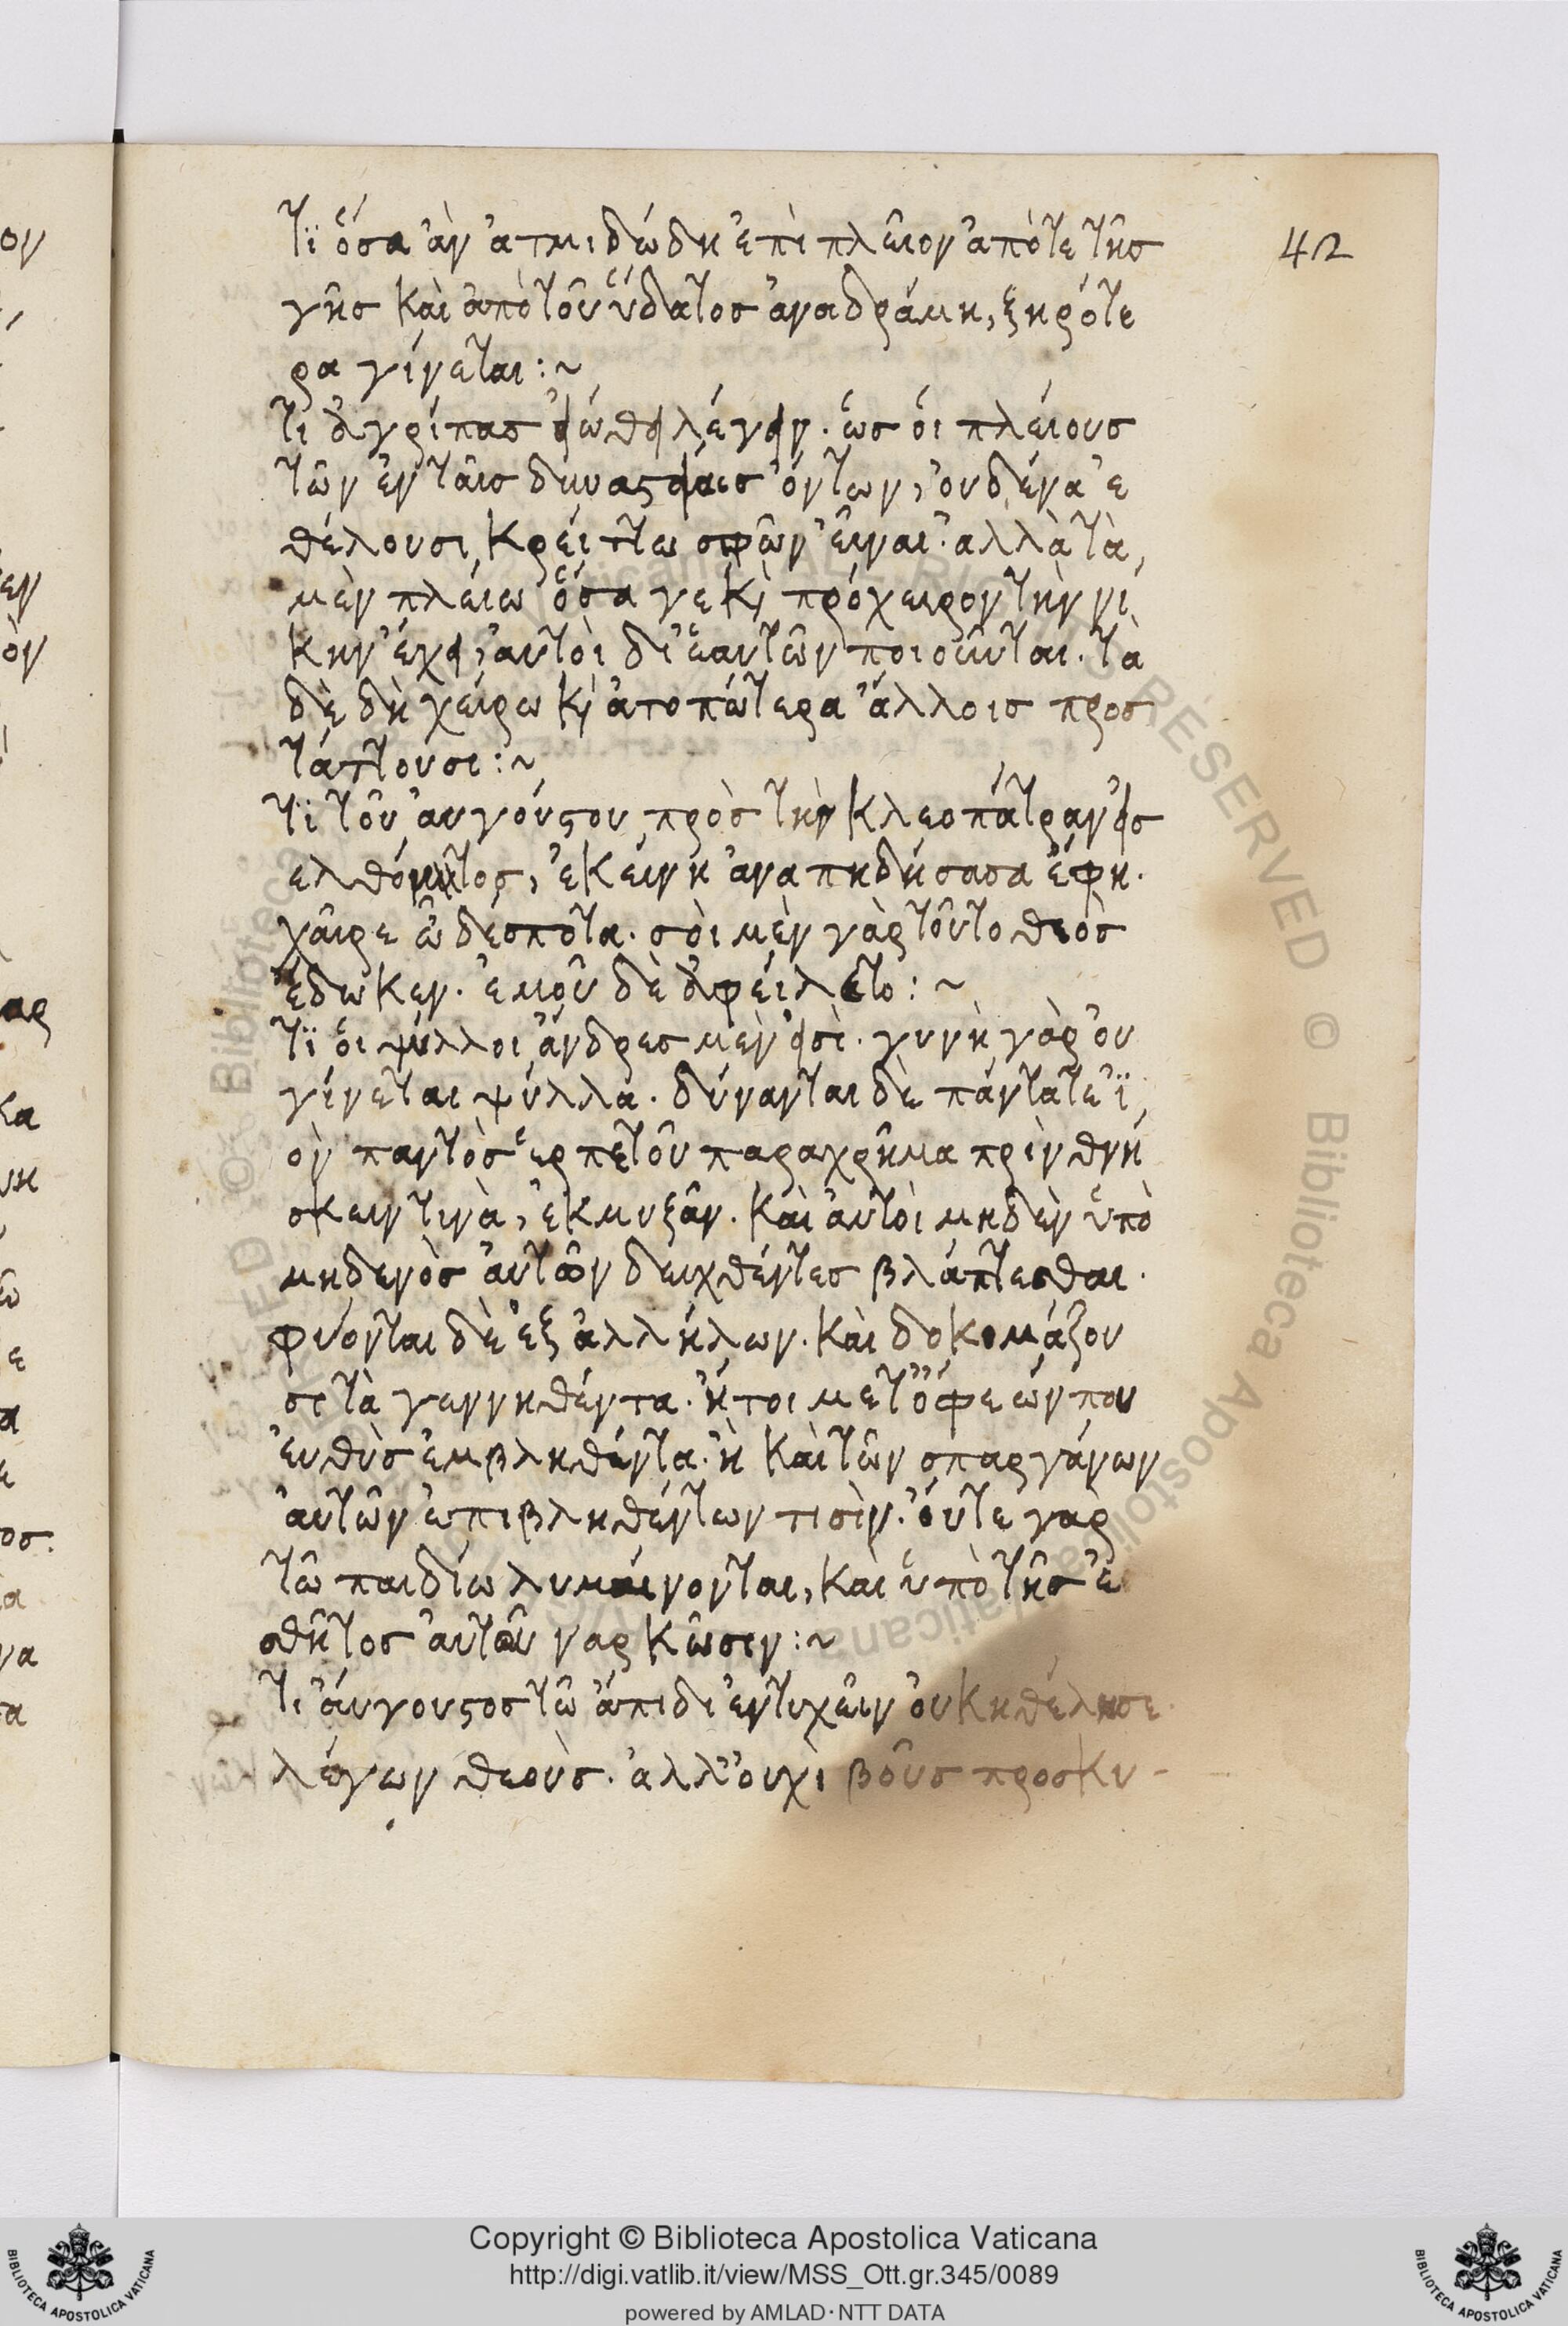 42
Τϊ ὅσα ἂν ἀτμιδώδη ἐπὶ πλεῖον ἀπό τε τῆσ
γῆσ καὶ ἀπὸ τοῦ ὕδατοσ ἀναδράμη, ξηρότε
ρα γίνεται :~
Τι ἀγρίπασ εἰώθει λέγειν. ὡσ ὁι πλείουσ
τῶν ἐν ταῖσ δυναστείαισ ὄντων, ουδένα ἐ
θέλουσι κρείττω σφῶν εἶναι. ἀλλὰ τὰ
μὲν πλείω ὅσα γε κὶ πρόχειρον τὴν νί
κην ἔχει, ἀυτοὶ δι ἑαυτῶν ποιοῦνται. τὰ
δὲ δὴ χείρω κὶ ἀτοπώτερα ἄλλοισ προσ
τάττουσι :~
Τϊ τοῦ ἀυγούστου πρὸσ τὴν κλεοπάτραν εἰσ
ελθόντος, ἐκείνη ἀναπηδήσασα ἔφη.
χαῖρε ὦ δέσποτα. σοὶ μὲν γὰρ τοῦτο θεὸσ
ἔδωκεν. ἐμοῦ δὲ ἀφείλετο :~
Τϊ ὁι ψύλλοι ἄνδρεσ μὲν εἰσὶ. γυνὴ γὰρ ὀυ
γίνεται ψύλλα. δύνανται δὲ πάντα τε ἰ
ὸν παντὸσ ἑρπετοῦ παραχρῆμα πρὶν θνή
σκειν τινὰ, ἐκμυξᾶν. καὶ ἀυτοὶ μηδὲν ὑπὸ
μηδενὸσ ἀυτῶν δειχθέντεσ βλάπτεσθαι.
φύονται δὲ ἐξ ἀλλήλων. καὶ δοκομάζου
σι τὰ γεννηθέντα. ἤτοι μετ ὄφεών που
ἐυθὺσ ἐμβληθέντα. ἢ καὶ τῶν σπαργάνων
ἀυτῶν ἐπιβληθέντων τισὶν. ὄυτε γὰρ
τῶ παιδίω λυμαίνονται, καὶ ὑπὸ τῆσ ἐ
σθῆτοσ ἀυτοῦ ναρκῶσιν :~
Τι ἄυγουστοσ τῶ ἄπιδι ἐντυχεῖν ὀυκ ηθέλησε
λέγων θεοὺσ. ἀλλ' ὀυχὶ βοῦσ προσκυ-
Copyright © Biblioteca Apostolica Vaticana
http://digi.vatlib.it/view/MSS_Ott.gr.345/0089
powered by AMLAD·NTT DATA